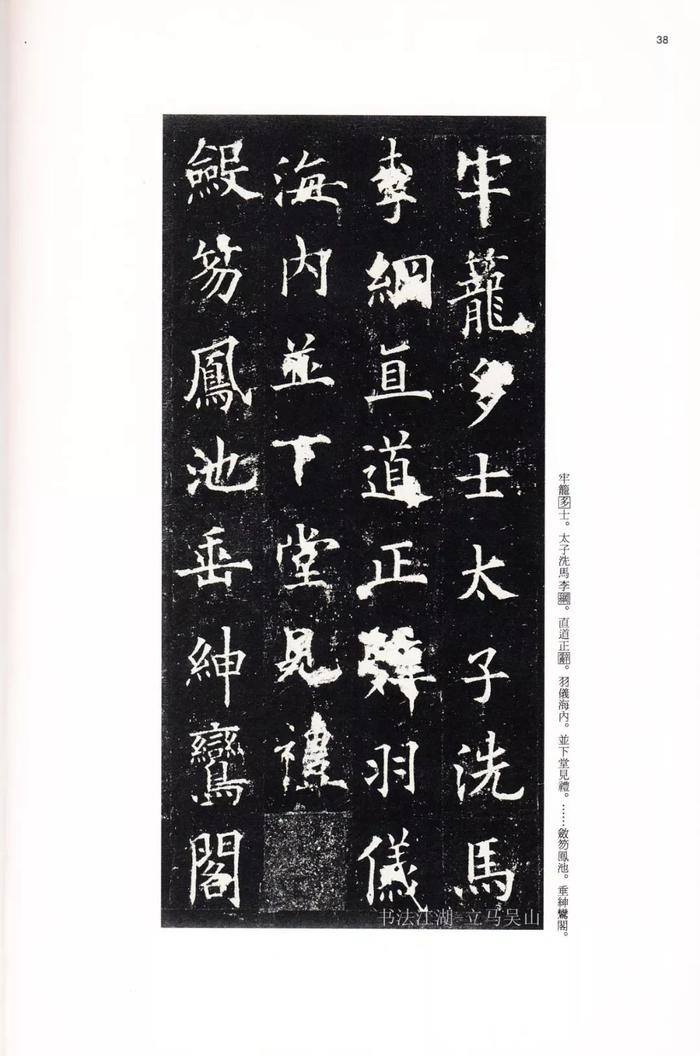 38
牢籠多士太子洗馬
李綱直道正辭羽儀
海內並下堂見禮
斂笏鳳池垂紳鸞閣
牢籠多士。太子洗馬李綱。直道正辭。羽儀海內。並下堂見禮。……斂笏鳳池。垂紳鸞閣。
书法江湖 立马吴山